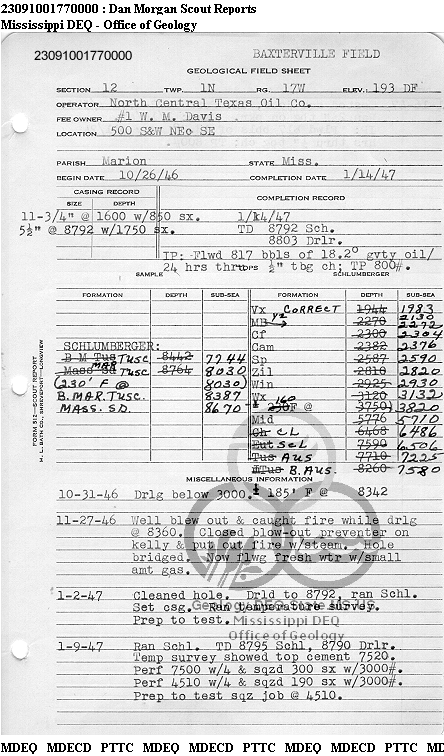 23091001770000 : Dan Morgan Scout Reports
Mississippi DEQ - Office of Geology
23091001770000
BAXTERVILLE FIELD
GEOLOGICAL FIELD SHEET
SECTION 12 TWP. 1N RG. 17W ELEV.: 193 DF
OPERATOR North Central Texas Oil Co.
FEE OWNER #1 W. M. Davis
LOCATION 500 S&W NEc SE
PARISH Marion STATE Miss.
BEGIN DATE 10/26/46 COMPLETION DATE 1/14/47
CASING RECORD
SIZE DEPTH
COMPLETION RECORD
11-3/4" @ 1600 w/850 sx. 1/14/47
5½" @ 8792 w/1750 sx. TD 8792 Sch.
8803 Drlr.
IP: Flwd 817 bbls of 18.2° gvty oil/
24 hrs thru ½" tbg ch; TP 800#.
SAMPLE SCHLUMBERGER
FORMATION DEPTH SUB-SEA FORMATION DEPTH SUB-SEA
Vx CORRECT 1944 1983
2270 2130
2272
Cf 2300 2304
Cam 2382 2376
SCHLUMBERGER:
B M Tus TUSC. 8442 7744 Sp 2587 2590
Mass Sd MAR TUSC. 8764 8030 Zil 2810 2820
(230' F @ 8030) Win 2925 2930
B. MAR. TUSC. 8387 Wx 3120 3132
MASS. SD. 8670 ± 160 250F @ 3750) 3820
Mid 5776 5710
Ch CL 6468 6486
Eut SCL 7590 6506
Tus AUS 7710 7225
MTus B. AUS. 8260 7580
MISCELLANEOUS INFORMATION
10-31-46 Drlg below 3000. ± 185' F @ 8342
11-27-46 Well blew out & caught fire while drlg
@ 8360. Closed blow-out preventer on
kelly & put out fire w/steam. Hole
bridged. Now flwg fresh wtr w/small
amt gas.
1-2-47 Cleaned hole. Drld to 8792, ran Schl.
Set csg. Ran temperature survey.
Prep to test.
Mississippi DEQ
Office of Geology
1-9-47 Ran Schl. TD 8795 Schl, 8790 Drlr.
Temp survey showed top cement 7520.
Perf 7500 w/4 & sqzd 300 sx w/3000#.
Perf 4510 w/4 & sqzd 190 sx w/3000#.
Prep to test sqz job @ 4510.
FORM 512—SCOUT REPORT
MDEQ MDECD PTTC MDEQ MDECD PTTC MDEQ MDECD PTTC MD